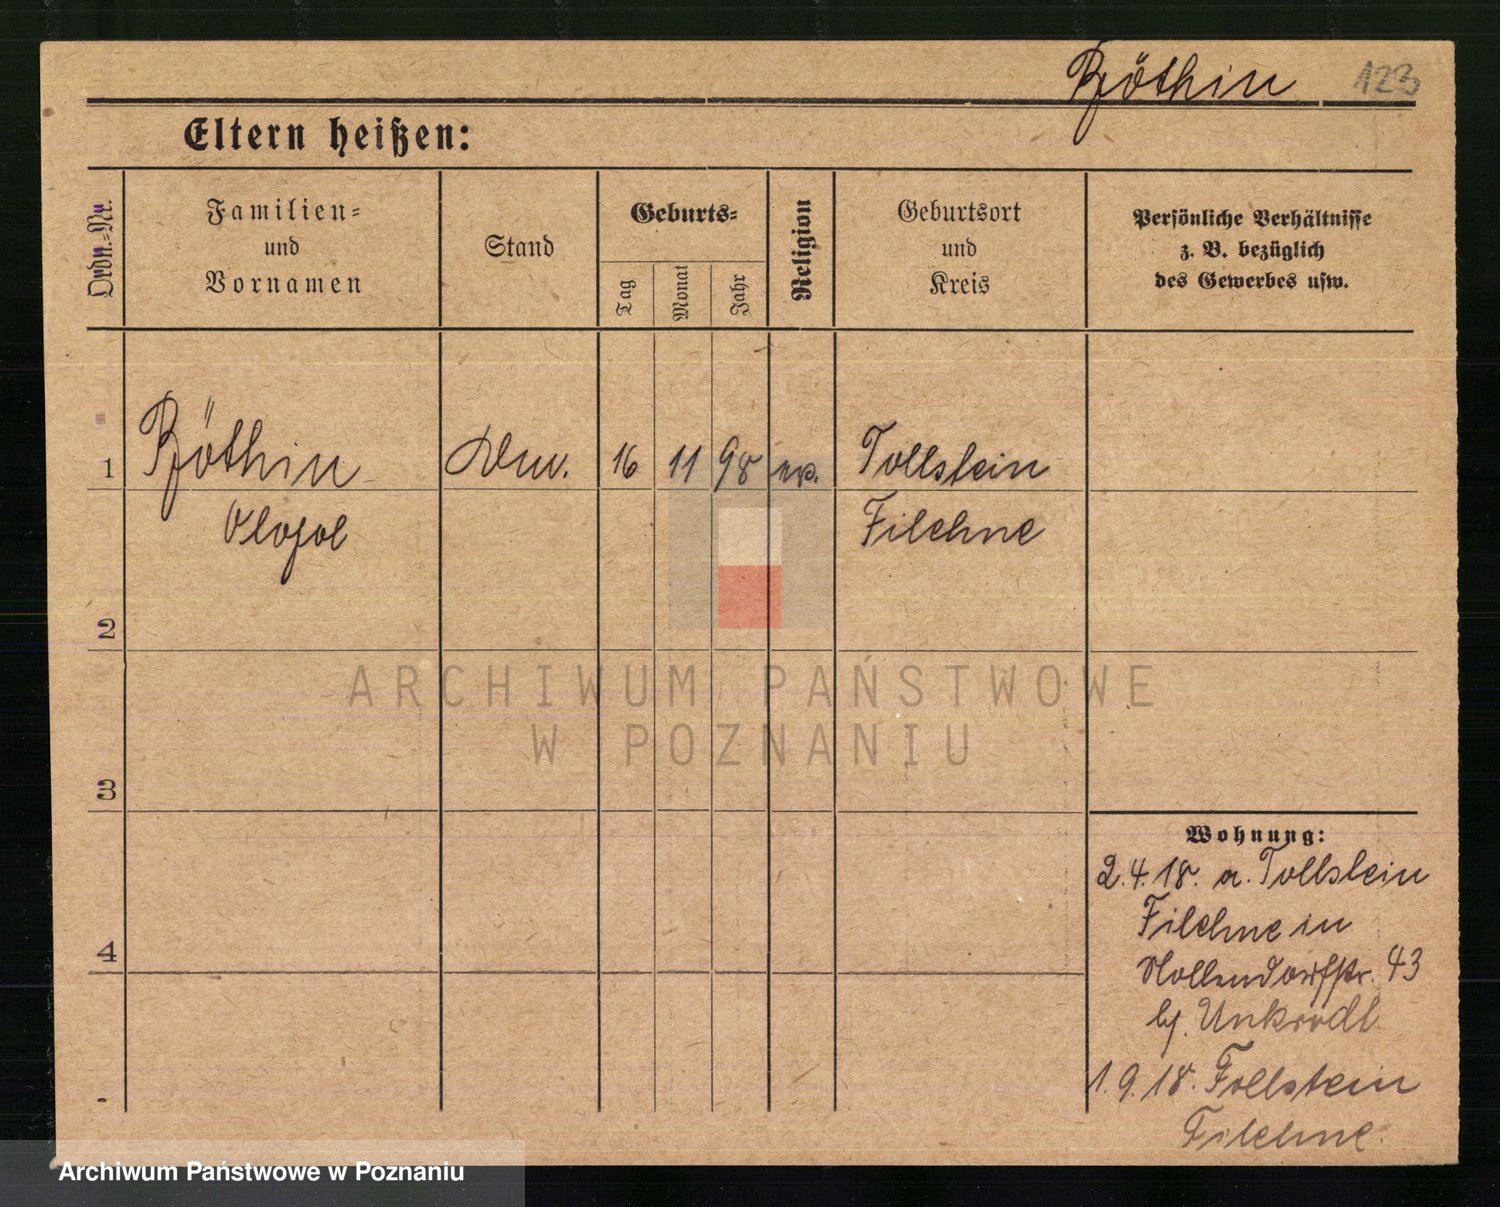 Röthin 123
Eltern heißen:
Ordn.-Nr.
Familien-
und
Vornamen
Stand
Geburts-
Tag
Monat
Jahr
Religion
Geburtsort
und
Kreis
Persönliche Verhältnisse
z. B. bezüglich
des Gewerbes usw.
1 Röthin 16 11 98 Follstein
Filehne
2
3
4
Wohnung:
2.4.18. a. Follstein
Filehne in
Nollendorfstr. 43
b/.
1.9.18. Follstein
Filehne.
ARCHIWUM PAŃSTWOWE
W POZNANIU
Archiwum Państwowe w Poznaniu